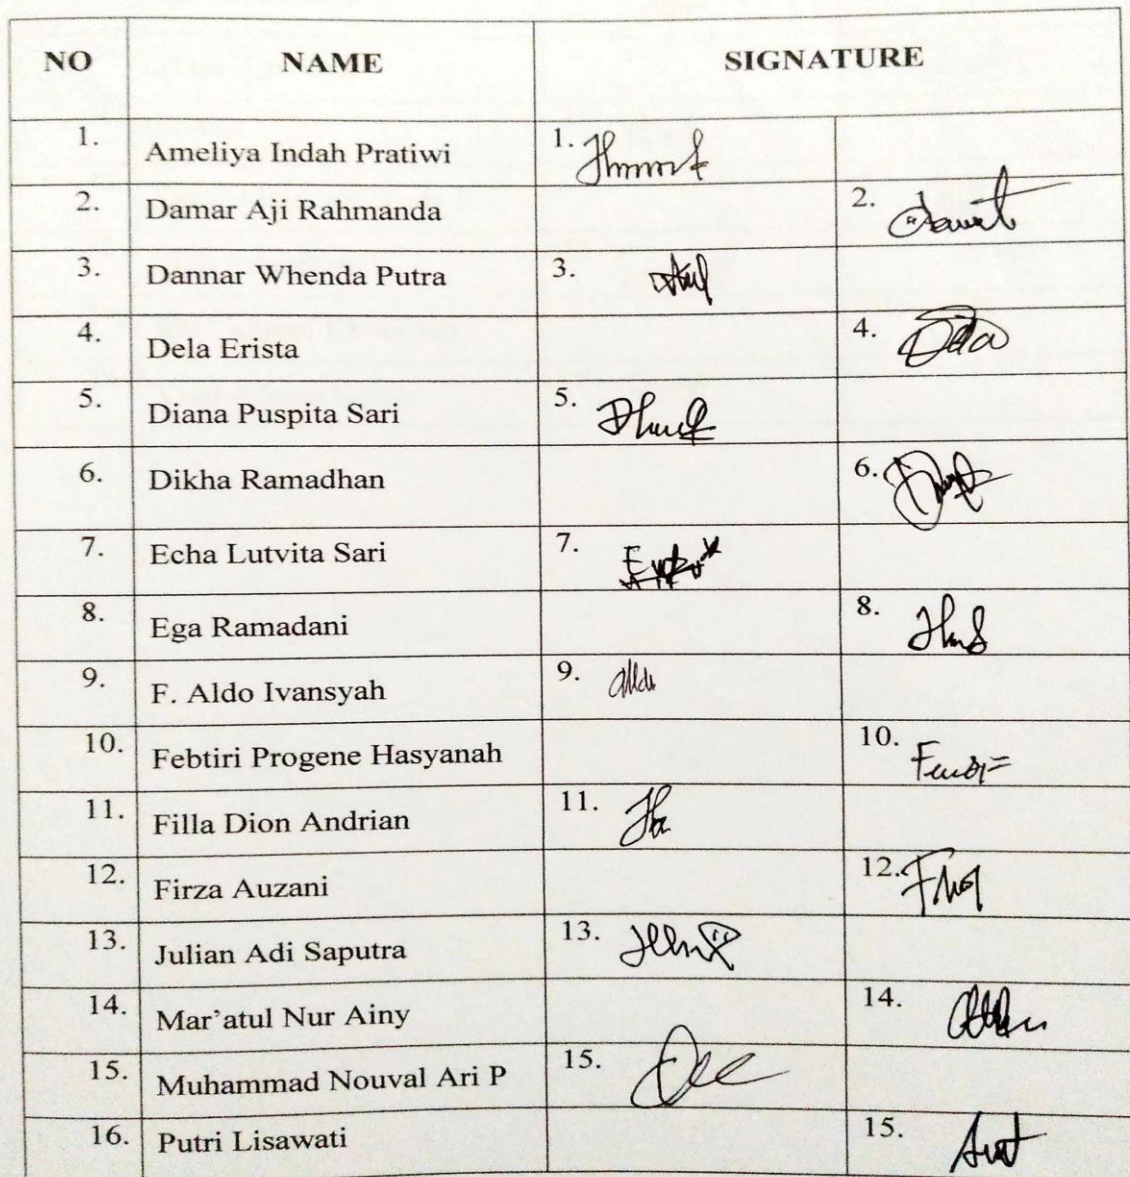 NO NAME SIGNATURE
1. Ameliya Indah Pratiwi 1.
2. Damar Aji Rahmanda 2.
3. Dannar Whenda Putra 3.
4. Dela Erista 4.
5. Diana Puspita Sari 5.
6. Dikha Ramadhan 6.
7. Echa Lutvita Sari 7.
8. Ega Ramadani 8.
9. F. Aldo Ivansyah 9.
10. Febtiri Progene Hasyanah 10.
11. Filla Dion Andrian 11.
12. Firza Auzani 12.
13. Julian Adi Saputra 13.
14. Mar'atul Nur Ainy 14.
15. Muhammad Nouval Ari P 15.
16. Putri Lisawati 15.